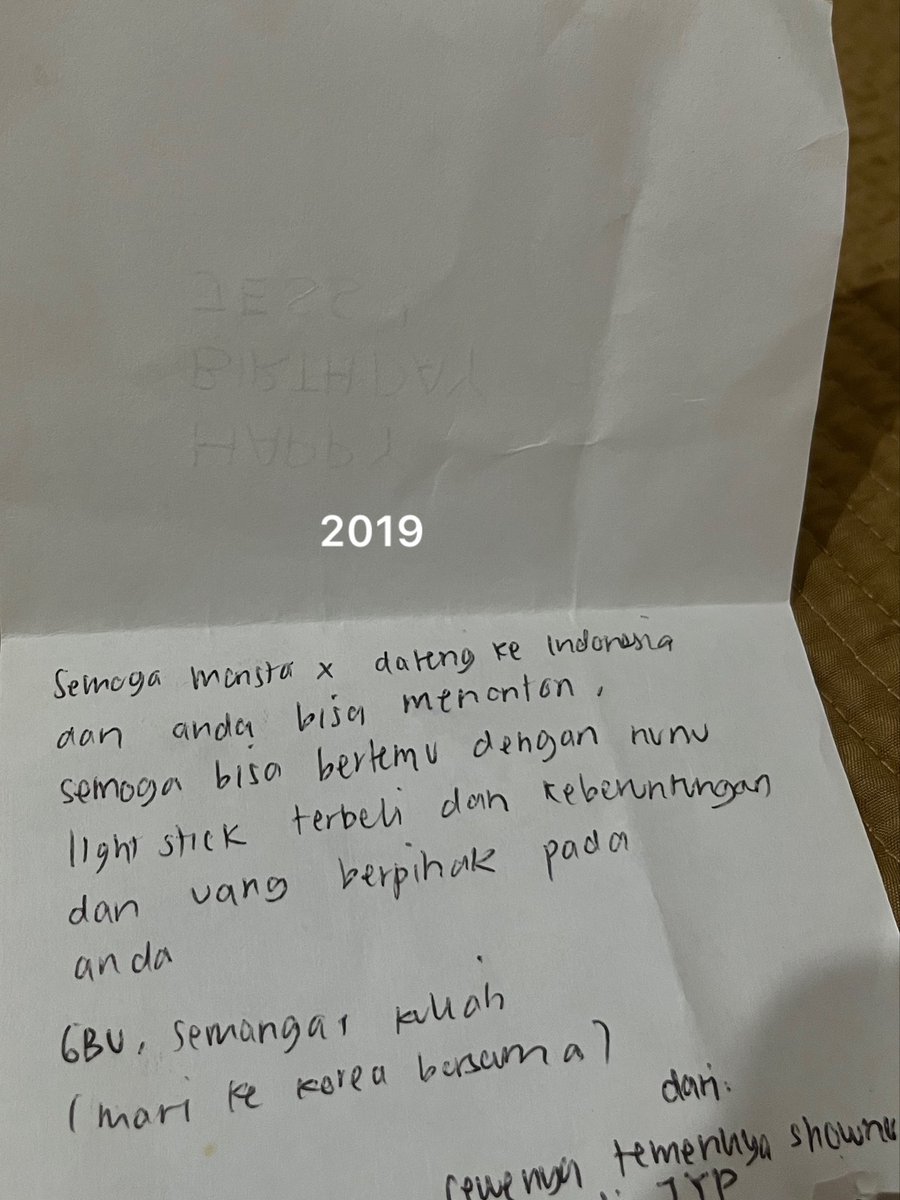 HAPPY
BIRTHDAY
JESS,
2019
Semoga monsta x dateng ke Indonesia
dan anda bisa menonton,
semoga bisa bertemu dengan nunu
light stick terbeli dan keberuntungan
dan uang berpihak pada
anda
GBU, semangat kuliah
(mari ke korea bersama)
dari:
cewenya temennya shownu
JYP